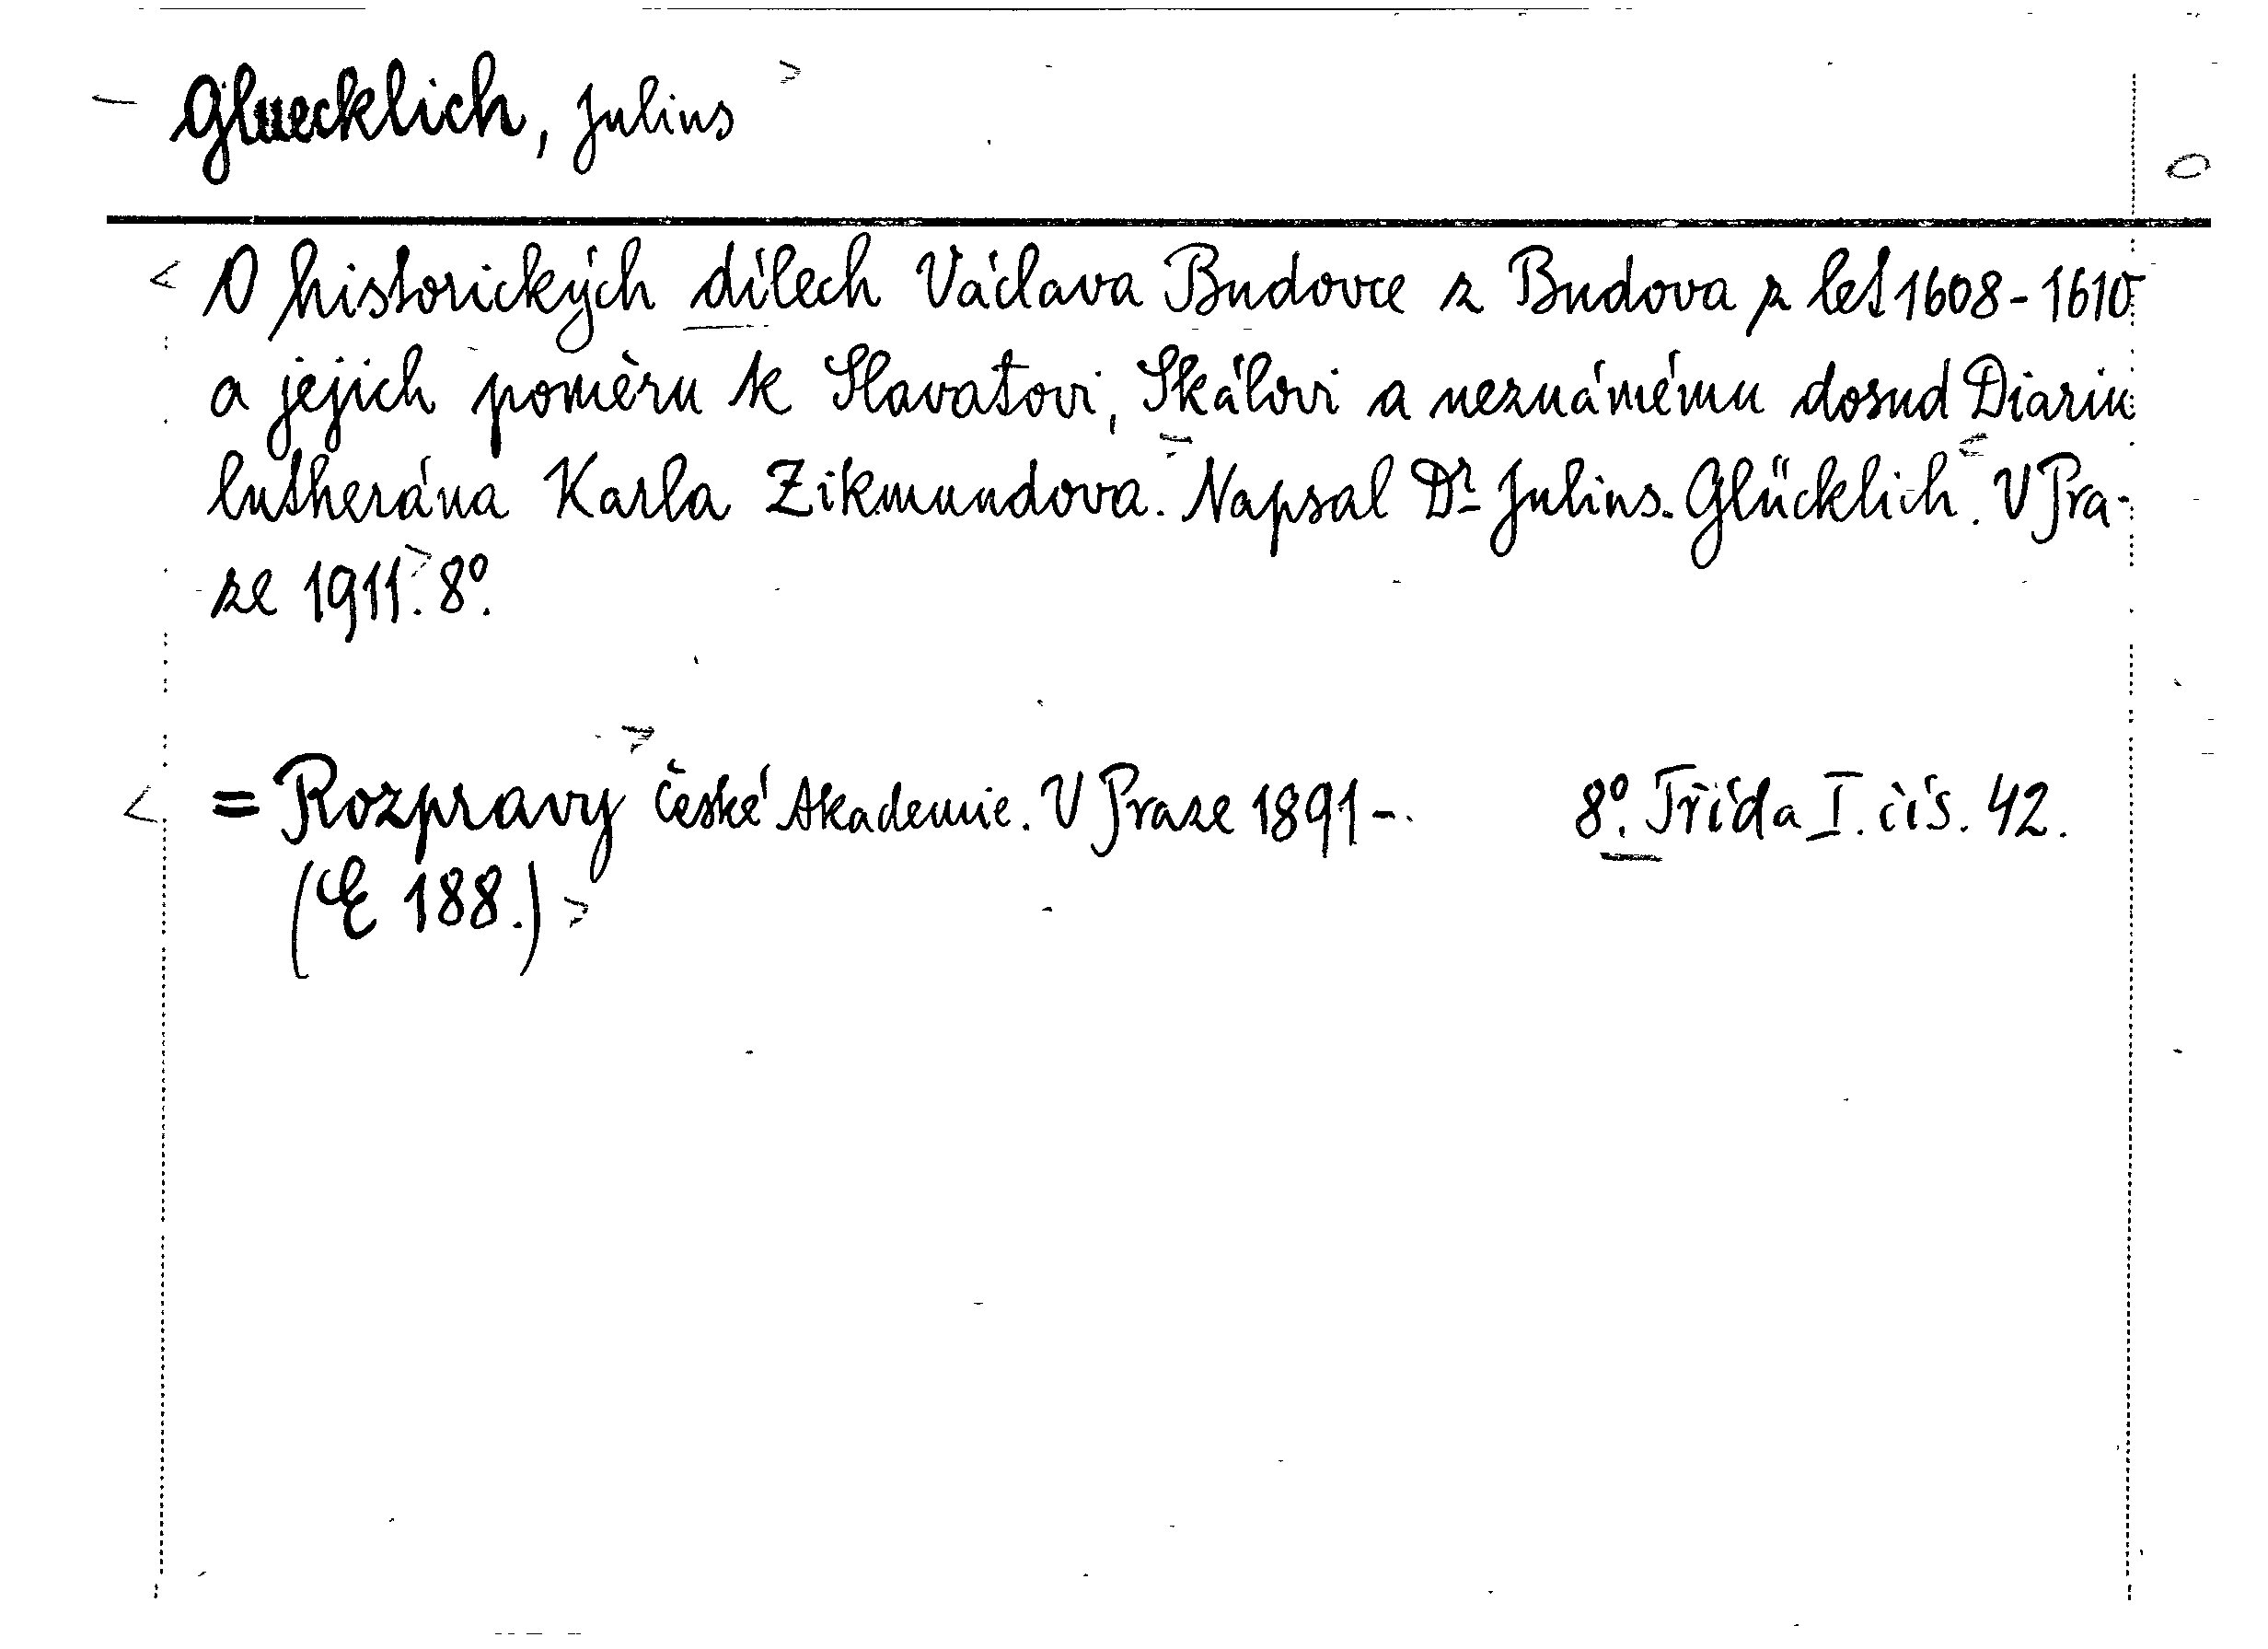 Gluecklich, Julius
O historických dílech Václava Budovce z Budova z let 1608-1610
a jejich poměru k Slavatovi, Skálovi a neznámému dosud Diariu
lutherána Karla Zikmundova. Napsal Dr. Julius Glücklich. V Pra-
ze 1911. 8º.
= Rozpravy České Akademie. V Praze 1891-. 8º. Třída I. čís. 42.
(E 188.)